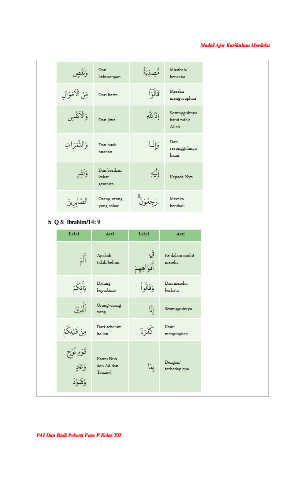 Modul Ajar Kurikulum Merdeka
وَنَقْصٍ Dan kekurangan مُصِيْبَةٌ Musibah/bencana
مِّنَ الْاَمْوَالِ Dari harta قَالُوْٓا Mereka mengucapkan
وَالْاَنْفُسِ Dan jiwa اِنَّا لِلّٰهِ Sesungguhnya kami milik Allah
وَالثَّمَرٰتِ Dan buah-buahan وَاِنَّآ Dan sesungguhnya kami
وَبَشِّرِ Dan berikan kabar gembira اِلَيْهِ Kepada-Nya
الصّٰبِرِيْنَ Orang-orang yang sabar رٰجِعُوْنَ Mereka kembali
b. Q.S. Ibrahim/14: 9
Lafal Arti Lafal Arti
اَلَمْ Apakah tidak/belum
يَأْتِكُمْ وَقَالُوْٓا Dan mereka berkata
الَّذِيْنَ Orang-orang yang اِنَّا Sesungguhnya
مِنْ قَبْلِكُمْ Dari sebelum kalian كَفَرْنَا Kami mengingkari
قَوْمِ نُوْحٍ
وَّعَادٍ Kaum Nuh dan Ad dan Tsamud بِمَآ
وَّثَمُوْدَ
PAI Dan Budi Pekerti Fase F Kelas XII